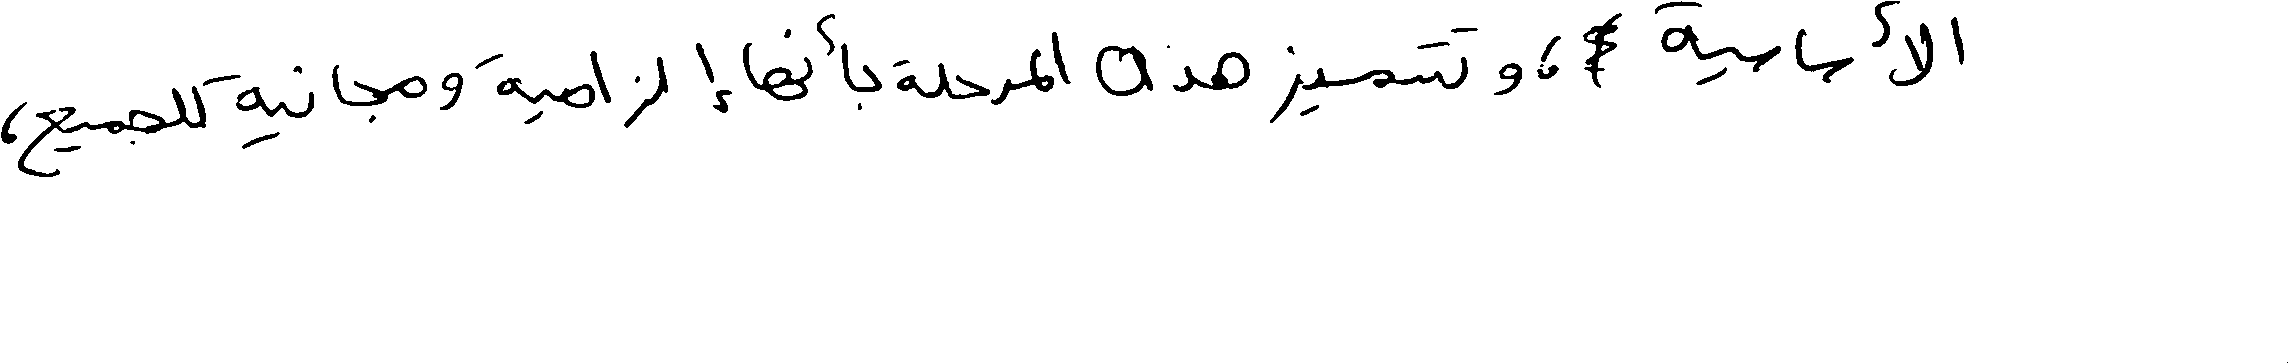 الأساسية ، وتتميز هذه المرحلة بأنها إلزامية ومجانية للجميع،